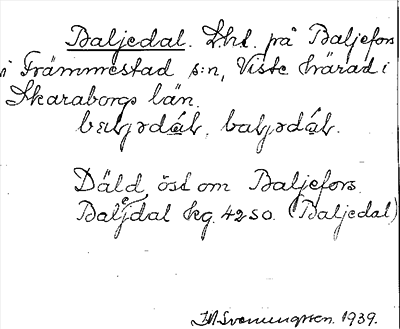 Baljedal. Lht. på Baljefors
i Främmestad s:n, Viste härad i
Skaraborgs län.
baljədál, baljədál.
Däld öst om Baljefors.
Baljdal kg. 42 SO. (Baljedal)
1939.